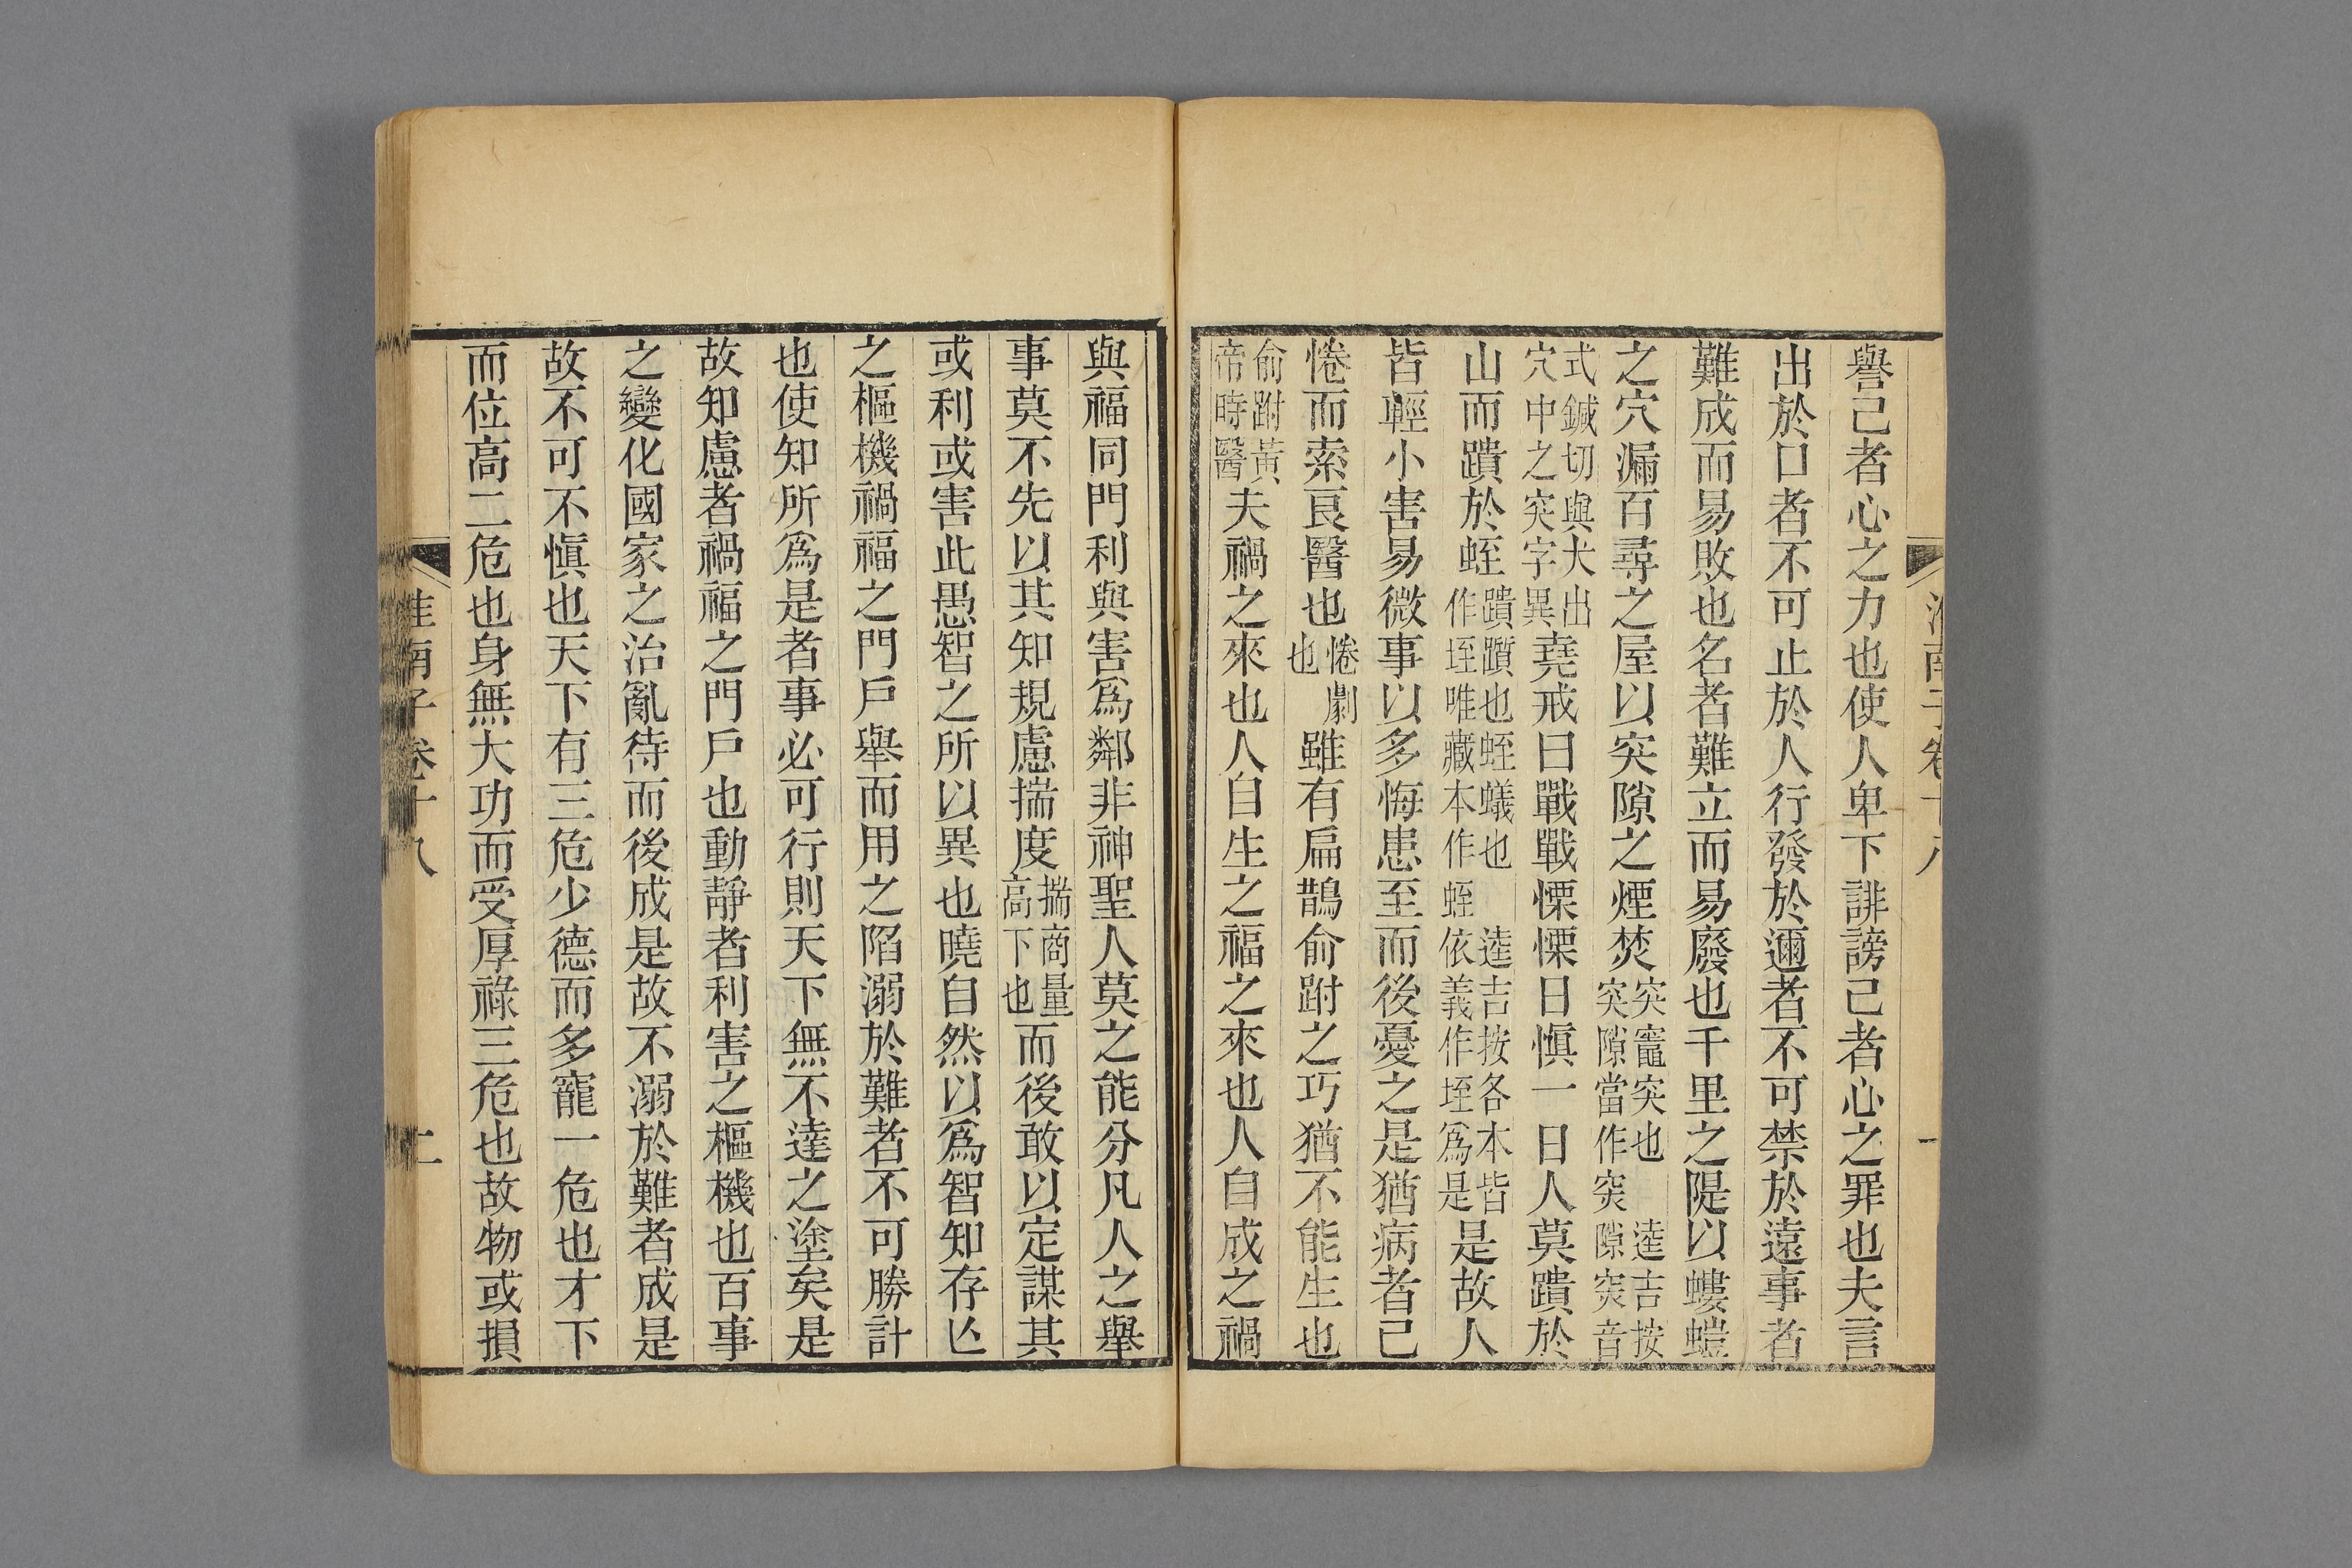 譽己者心之力也使人卑下誹謗己者心之罪也夫言
出於口者不可止於人行發於邇者不可禁於遠事者
難成而易敗也名者難立而易廢也千里之隄以螻螘
之穴漏百尋之屋以突隙之煙焚突竈突也突隙當作突逵吉按隙突音
式鍼切與犬出穴中之突字異堯戒曰戰戰慄慄日愼一日人莫蹪於
山而蹪於蛭蹪躓也蛭蟻也作垤唯藏本作蛭逵吉按各本皆依義作垤爲是是故人
皆輕小害易微事以多悔患至而後憂之是猶病者已
惓而索良醫也惓劇也雖有扁鵲俞跗之巧猶不能生也
俞跗黃帝時醫夫禍之來也人自生之福之來也人自成之禍
與福同門利與害爲鄰非神聖人莫之能分凡人之舉
事莫不先以其知規慮揣度揣商量高下也而後敢以定謀其
或利或害此愚智之所以異也曉自然以爲智知存亾
之樞機禍福之門戶舉而用之陷溺於難者不可勝計
也使知所爲是者事必可行則天下無不達之塗矣是
故知慮者禍福之門戶也動靜者利害之樞機也百事
之變化國家之治亂待而後成是故不溺於難者成是
故不可不愼也天下有三危少德而多寵一危也才下
而位高二危也身無大功而受厚祿三危也故物或損
淮南子卷十八
二